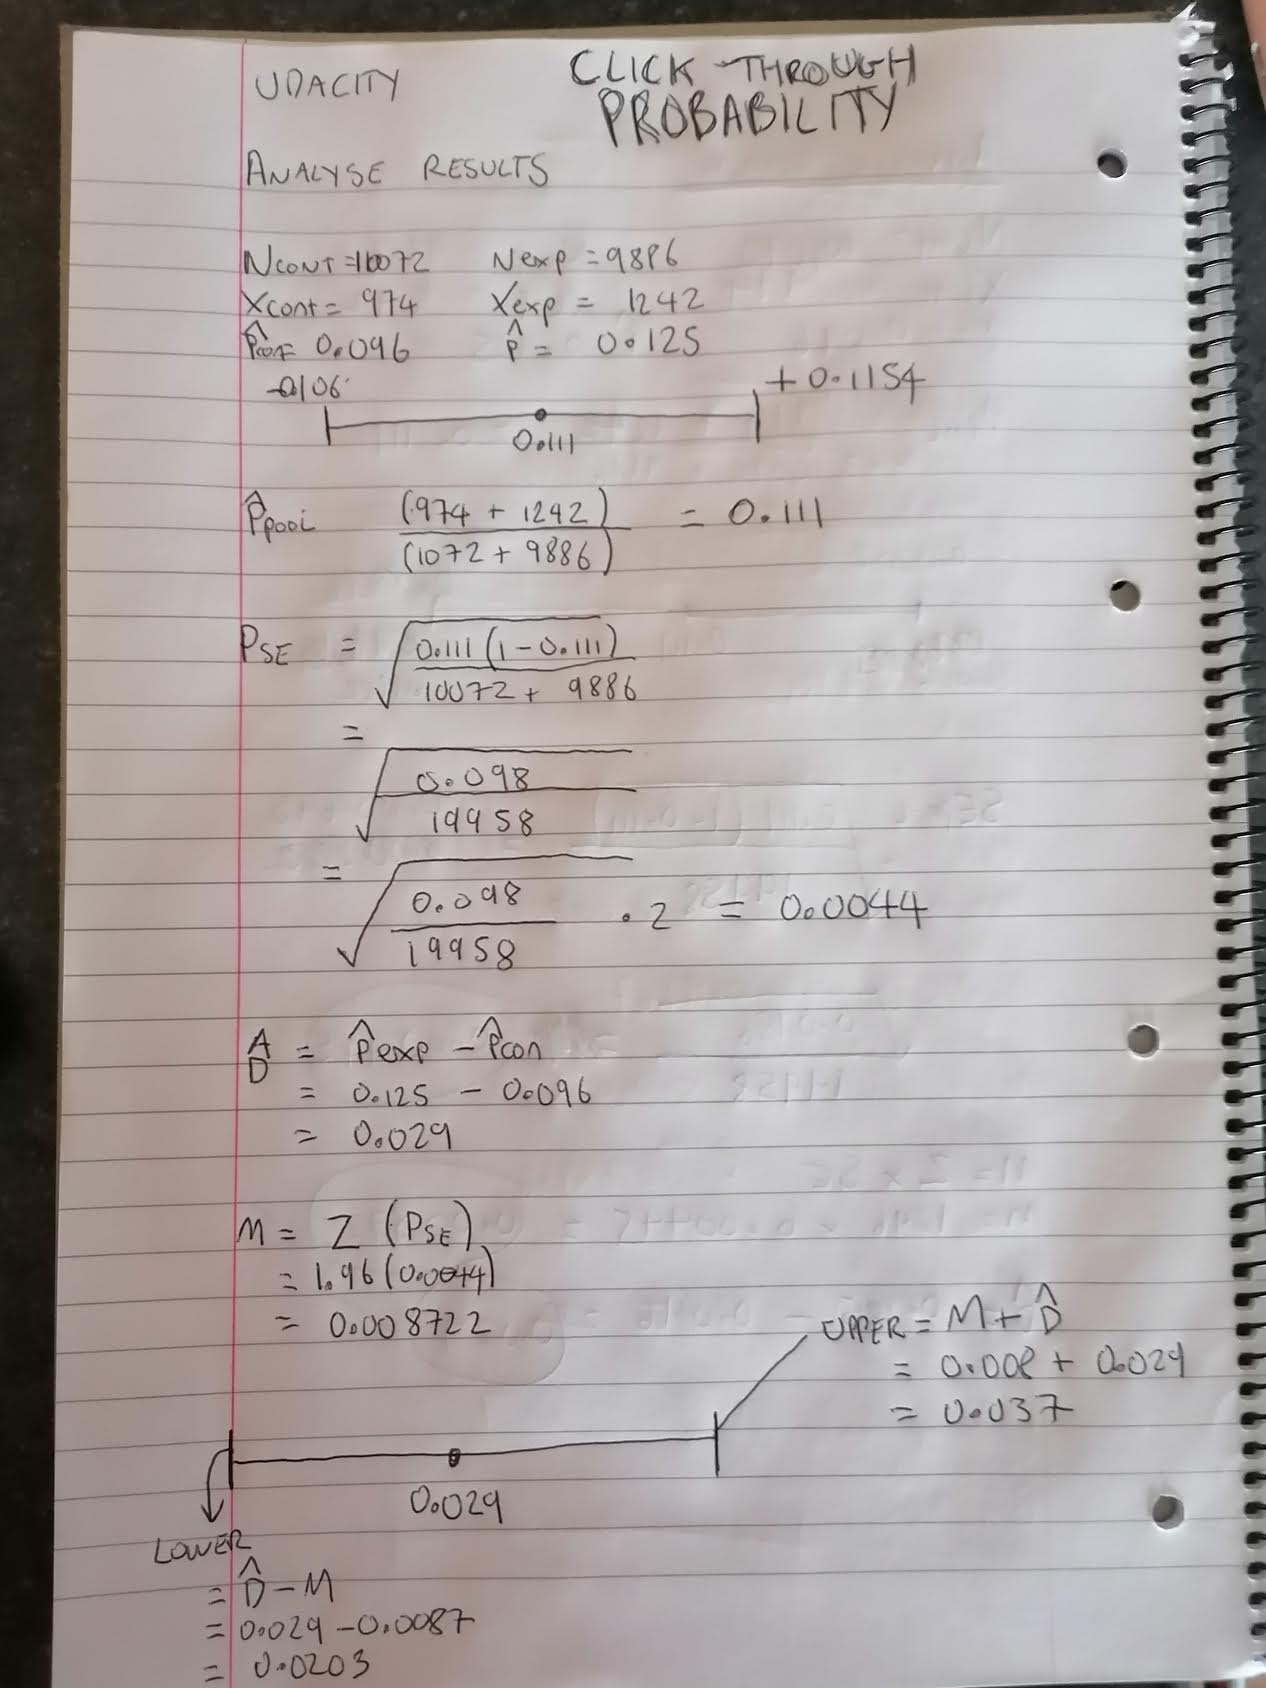 UDACITY
CLICK THROUGH
PROBABILITY
ANALYSE RESULTS
Ncont = 10072 Nexp = 9886
Xcont = 974 Xexp = 1242
P̂con = 0.096 p̂ = 0.125
-0.106 + 0.1154
0.111
P̂pool (974 + 1242) / (1072 + 9886) = 0.111
PSE = √(0.111 (1 - 0.111) / 10072 + 9886)
= √(0.098 / 19958)
= √(0.098 / 19958) · 2 = 0.0044
D̂ = P̂exp - P̂con
= 0.125 - 0.096
= 0.029
M = Z (PSE)
= 1.96 (0.0044)
= 0.008722
UPPER = M + D̂
= 0.008 + 0.029
= 0.037
0.029
LOWER
= D̂ - M
= 0.029 - 0.0087
= 0.0203